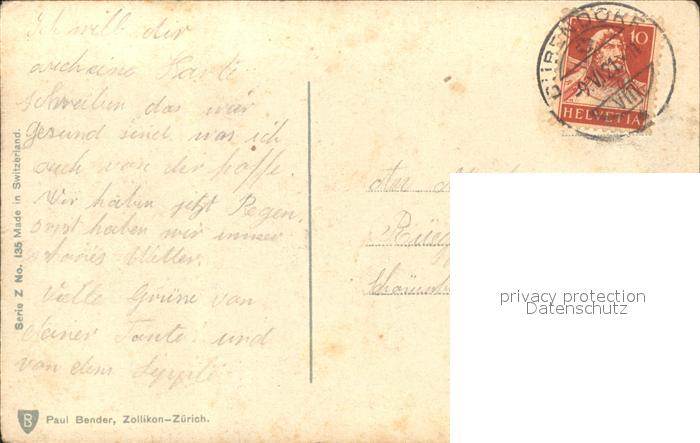 Ich will dir
auch eine Karte
schreiben das wier
gesund sind was ich
auch von dir hoffe.
Wir haben jetzt Regen,
sonst haben wir immer
schönes Wetter.
Vielle Grüse von
deiner Tante und
von dem
Serie Z No. 135 Made in Switzerland.
B
Paul Bender, Zollikon-Zürich.
DÜBENDORF
10
HELVETIA
An
privacy protection
Datenschutz